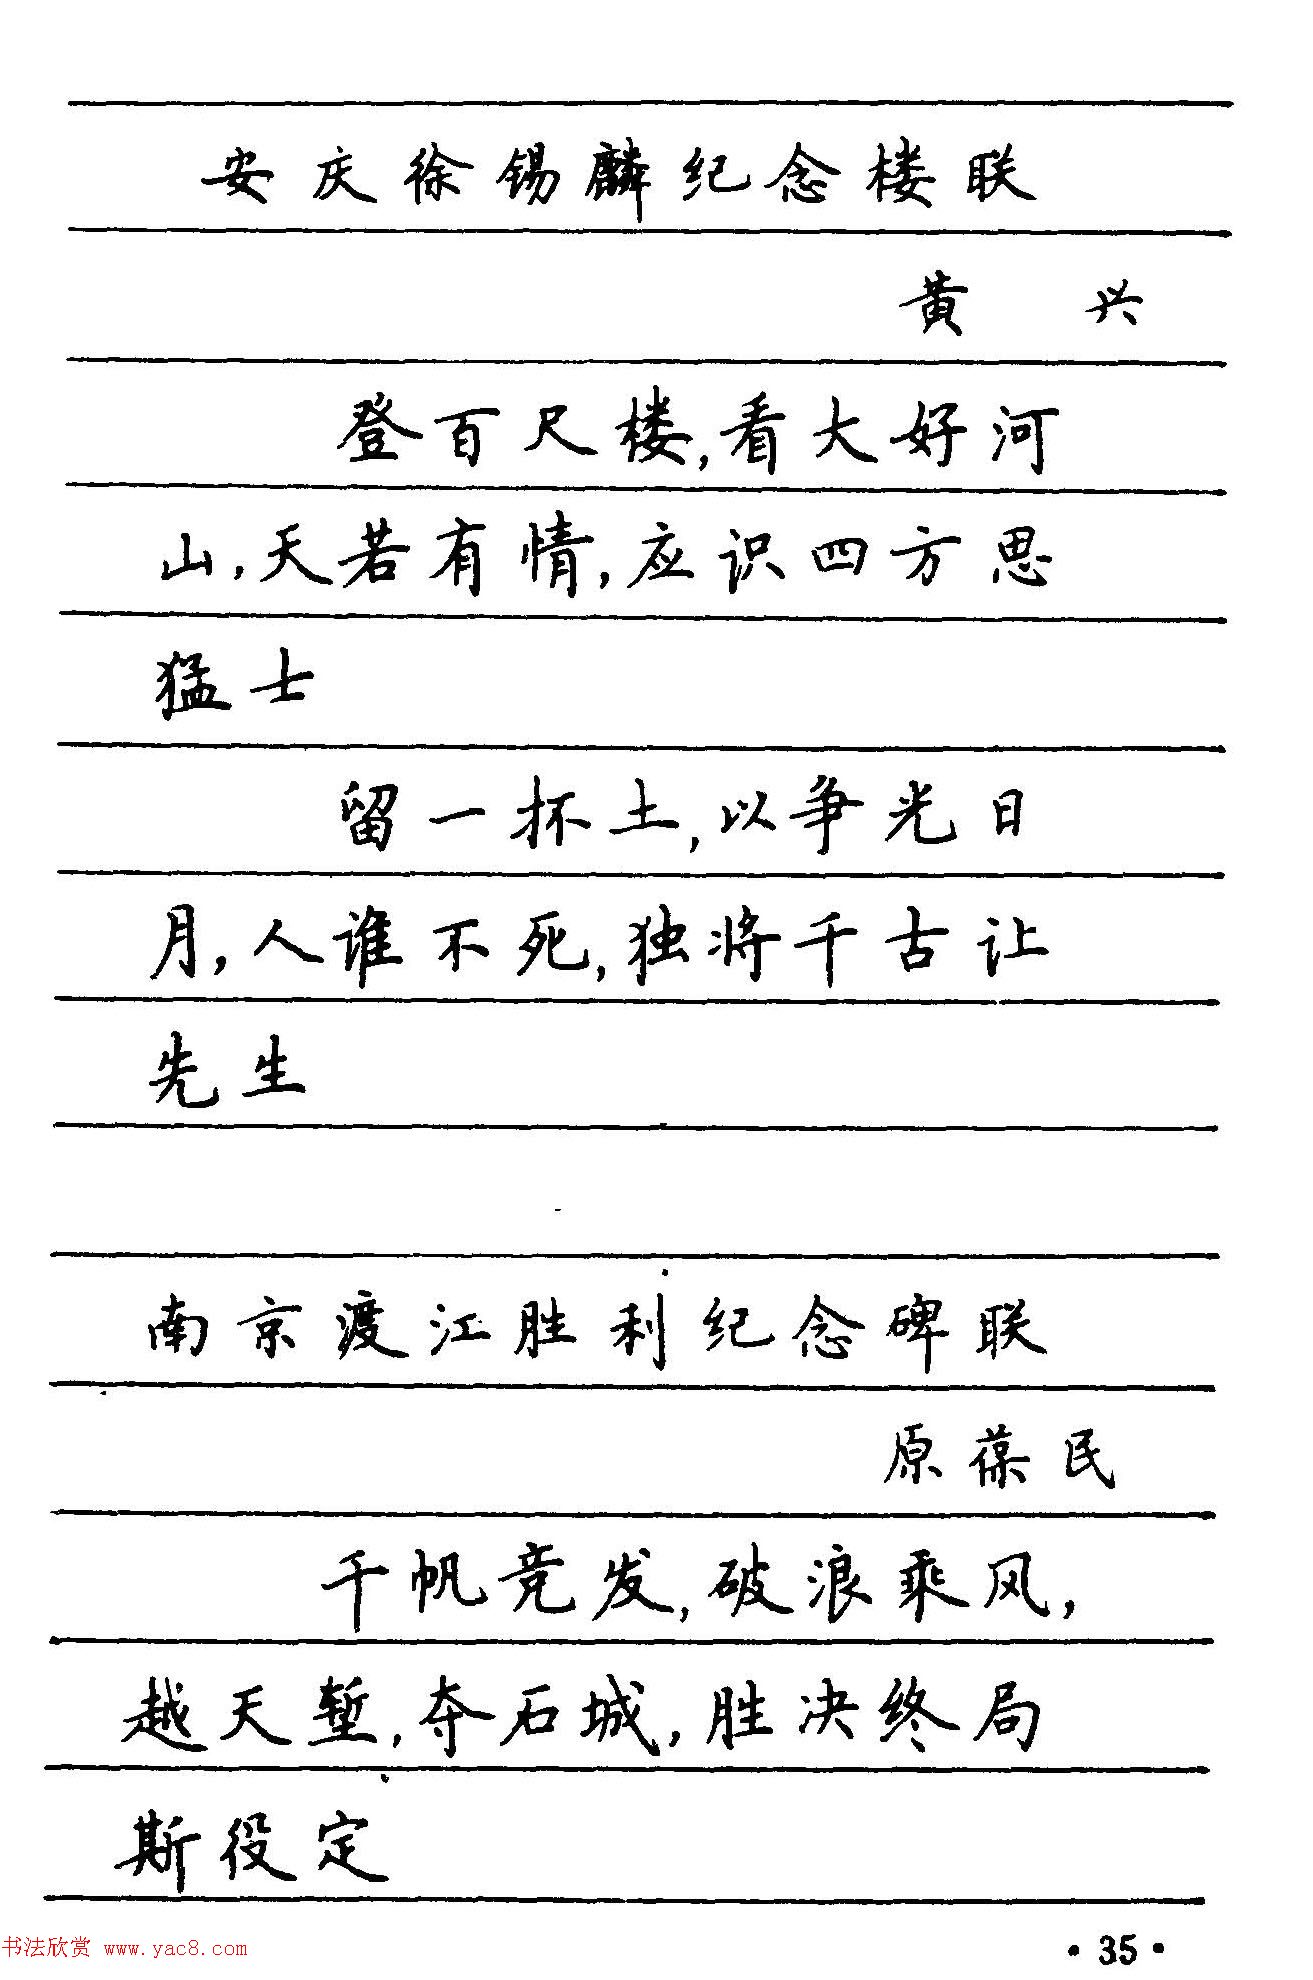 安庆徐锡麟纪念楼联
黄 兴
登百尺楼,看大好河
山,天若有情,应识四方思
猛士
留一抔土,以争光日
月,人谁不死,独将千古让
先生
南京渡江胜利纪念碑联
原葆民
千帆竞发,破浪乘风,
越天堑,夺石城,胜决终局
斯役定
书法欣赏 www.yac8.com
·35·